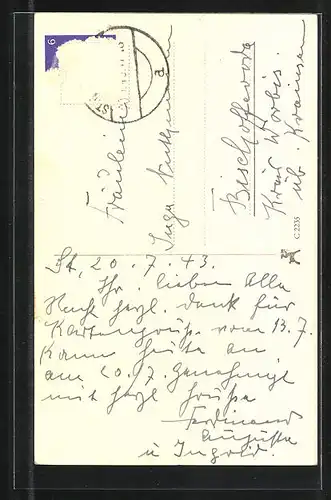 6
a
Fräulein
Inga
Bischofferode
Kreis Worbis
üb. Krainen
C 2235
St, 20. 7. 43.
Ihr lieben Alle
herzl. Dank für
Kartengruß vom 13.7.
Kamm heute an
am 20.7. Genehmigt
mit herzl Grüße
Ferdinand
Augusta
u Ingold.